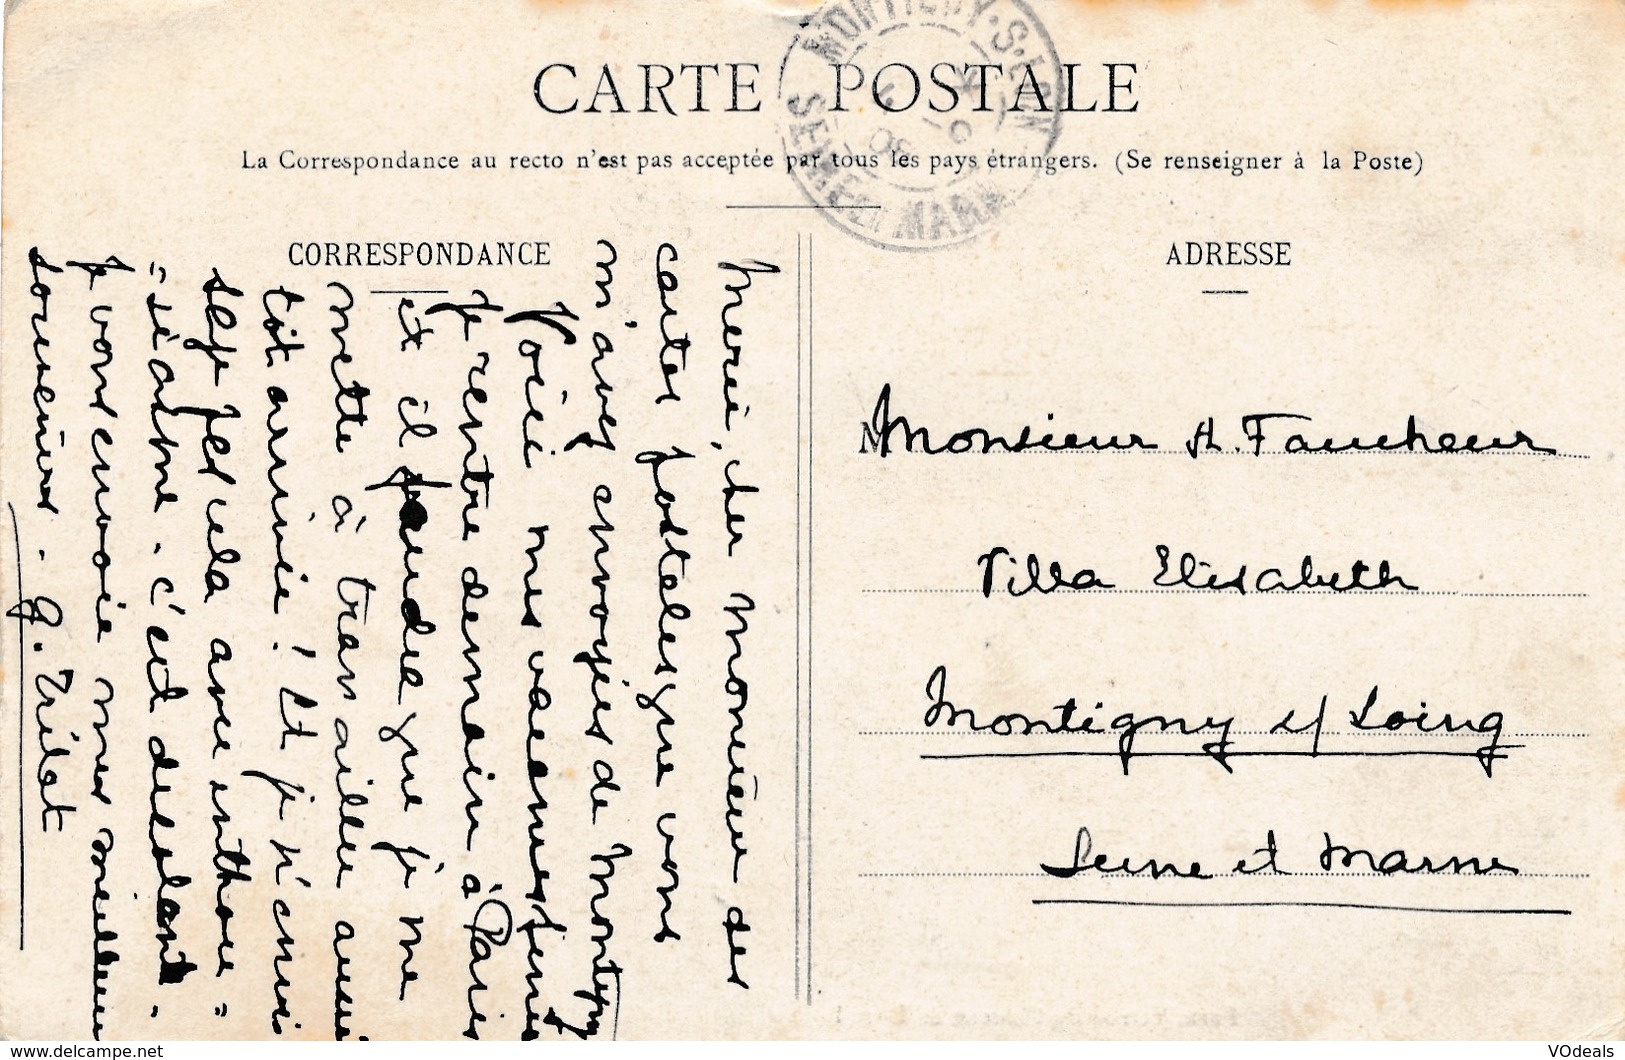 CARTE POSTALE
MONTIGNY-S-LOIN
SEINE-ET-MARNE
La Correspondance au recto n'est pas acceptée par tous les pays étrangers. (Se renseigner à la Poste)
CORRESPONDANCE
Merci, cher Monsieur des
cartes postales que vous
m'avez envoyées de Montigny
Voici mes vacances finies
Je rentre demain à Paris
et il faudra que je me
mette à travailler aussi
tôt arrivée! Et je n'envi
sage pas cela avec enthou =
"siasme - c'est désolant.
Je vous envoie mes meilleurs
souvenirs - G. Trilat
ADRESSE
M
Monsieur A. Faucheur
Villa Elisabeth
Montigny s/ Loing
Seine et Marne
VOdeals
http://www.delcampe.net